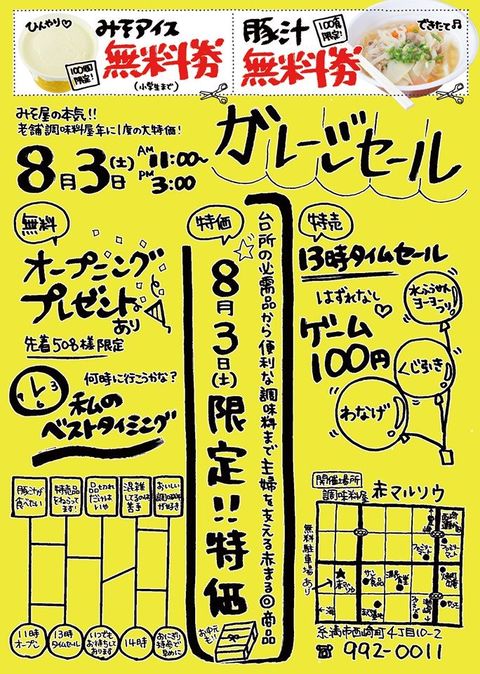 ひんやり♡
みそアイス
無料券
100個限定!
(小学生まで)
豚汁
100食限定!
無料券
できたて♫
みそ屋の本気!!
老舗調味料屋年に1度の大特価!
8月3日(土) AM11:00~PM3:00
ガレージセール
無料
オープニング
プレゼント
あり
先着50名様限定
何時に行こうかな?
私の
ベストタイミング
豚汁が食べたい
特売品をねらってます!
品切れだけはいや
混雑してるのは苦手
おいしい調味料が好き
11時オープン
13時タイムセール
いつでもお待ちしております
14時
おにぎり特売で早めに
特価
台所の必需品から便利な調味料まで主婦を支える赤まる◎商品
8月3日(土)限定!!特価
お中元も!!
特売
13時タイムセール
はずれなし♡
ゲーム
100円
水ふうせんヨーヨーつり
くじるき
わなげ
開催場所
調味料屋 赤マルソウ
無料駐車場あり
糸満市西崎町4丁目10-2
☎ 992-0011